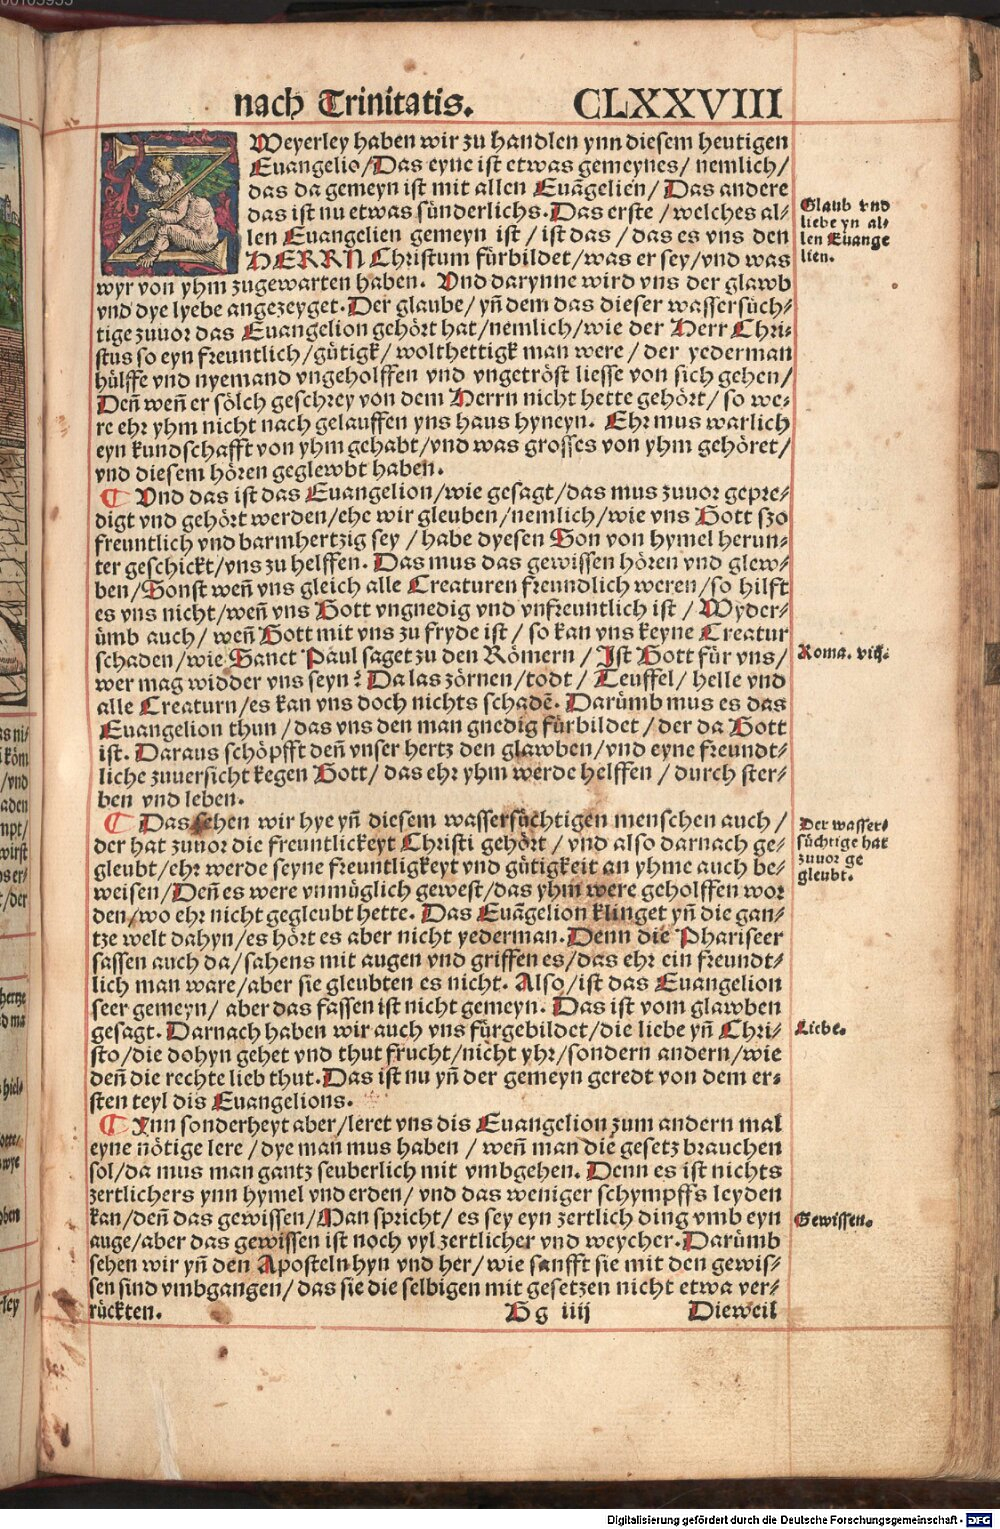 nach Trinitatis. CLXXVIII
ZWeyerley haben wir zu handlen ynn diesem heutigen
Euangelio/Das eyne ist etwas gemeynes/ nemlich/
das da gemeyn ist mit allen Euãgelien/ Das andere
das ist nu etwas sünderlichs. Das erste/welches al-
len Euangelien gemeyn ist/ist das/das es vns den
HERRN Christum fürbildet/was er sey/vnd was
wyr von yhm zugewarten haben. Vnd darynne wird vns der glawb
vnd dye lyebe angezeyget. Der glaube/ yñ dem das dieser wassersüch-
tige zuuor das Euangelion gehört hat/nemlich/wie der Herr Chri-
stus so eyn freuntlich/gütigk/wolthettigk man were/der yederman
hülffe vnd nyemand vngeholffen vnd vngetröst liesse von sich gehen/
Deñ weñ er sölch geschrey von dem Herrn nicht hette gehört/ so we-
re ehr yhm nicht nach gelauffen yns haus hyneyn. Ehr mus warlich
eyn kundschafft von yhm gehabt/vnd was grosses von yhm gehöret/
vnd diesem hören geglewbt haben.
¶ Vnd das ist das Euangelion/wie gesagt/das mus zuuor gepre-
digt vnd gehört werden/ehe wir gleuben/nemlich/wie vns Gott szo
freuntlich vnd barmhertzig sey/habe dyesen Son von hymel herun-
ter geschickt/vns zu helffen. Das mus das gewissen hören vnd glew-
ben/Sonst weñ vns gleich alle Creaturen freundlich weren/so hilft
es vns nicht/weñ vns Gott vngnedig vnd vnfreuntlich ist/ Wyder-
ümb auch/ weñ Gott mit vns zu fryde ist/ so kan vns keyne Creatur
schaden/wie Sanct Paul saget zu den Römern/Ist Gott für vns/
wer mag widder vns seyn? Da las zörnen/todt/ Teuffel/ helle vnd
alle Creaturn/es kan vns doch nichts schadē. Darümb mus es das
Euangelion thun/das vns den man gnedig fürbildet/der da Gott
ist. Daraus schöpfft deñ vnser hertz den glawben/vnd eyne freundt-
liche zuuersicht kegen Gott/das ehr yhm werde helffen/durch ster-
ben vnd leben.
¶ Das sehen wir hye yñ diesem wassersüchtigen menschen auch/
der hat zuuor die freuntlickeyt Christi gehört/vnd also darnach ge-
gleubt/ehr werde seyne freuntligkeyt vnd gütigkeit an yhme auch be-
weisen/Deñ es were vnmüglich gewest/das yhm were geholffen wor
den/wo ehr nicht gegleubt hette. Das Euãgelion klinget yñ die gan-
tze welt dahyn/es hört es aber nicht yederman. Denn die Phariseer
sassen auch da/sahens mit augen vnd griffen es/das ehr ein freundt-
lich man ware/aber sie gleubten es nicht. Also/ist das Euangelion
seer gemeyn/ aber das fassen ist nicht gemeyn. Das ist vom glawben
gesagt. Darnach haben wir auch vns fürgebildet/die liebe yñ Chri-
sto/die dohyn gehet vnd thut frucht/nicht yhr/sondern andern/wie
deñ die rechte lieb thut. Das ist nu yñ der gemeyn geredt von dem er-
sten teyl dis Euangelions.
¶ Ynn sonderheyt aber/leret vns dis Euangelion zum andern mal
eyne nötige lere/dye man mus haben/ weñ man die gesetz brauchen
sol/da mus man gantz seuberlich mit vmbgehen. Denn es ist nichts
zertlichers ynn hymel vnd erden/ vnd das weniger schympffs leyden
kan/deñ das gewissen/Man spricht/ es sey eyn zertlich ding vmb eyn
auge/aber das gewissen ist noch vyl zertlicher vnd weycher. Darümb
sehen wir yñ den Aposteln hyn vnd her/wie sanfft sie mit den gewis-
sen sind vmbgangen/das sie die selbigen mit gesetzen nicht etwa ver-
rückten. Gg iiij Dieweil
Glaub vnd
liebe yn al-
len Euange
lien.
Roma. viij.
Der wasser-
süchtige hat
zuuor ge
gleubt.
Liebe.
Gewissen.
Digitalisierung gefördert durch die Deutsche Forschungsgemeinschaft - DFG